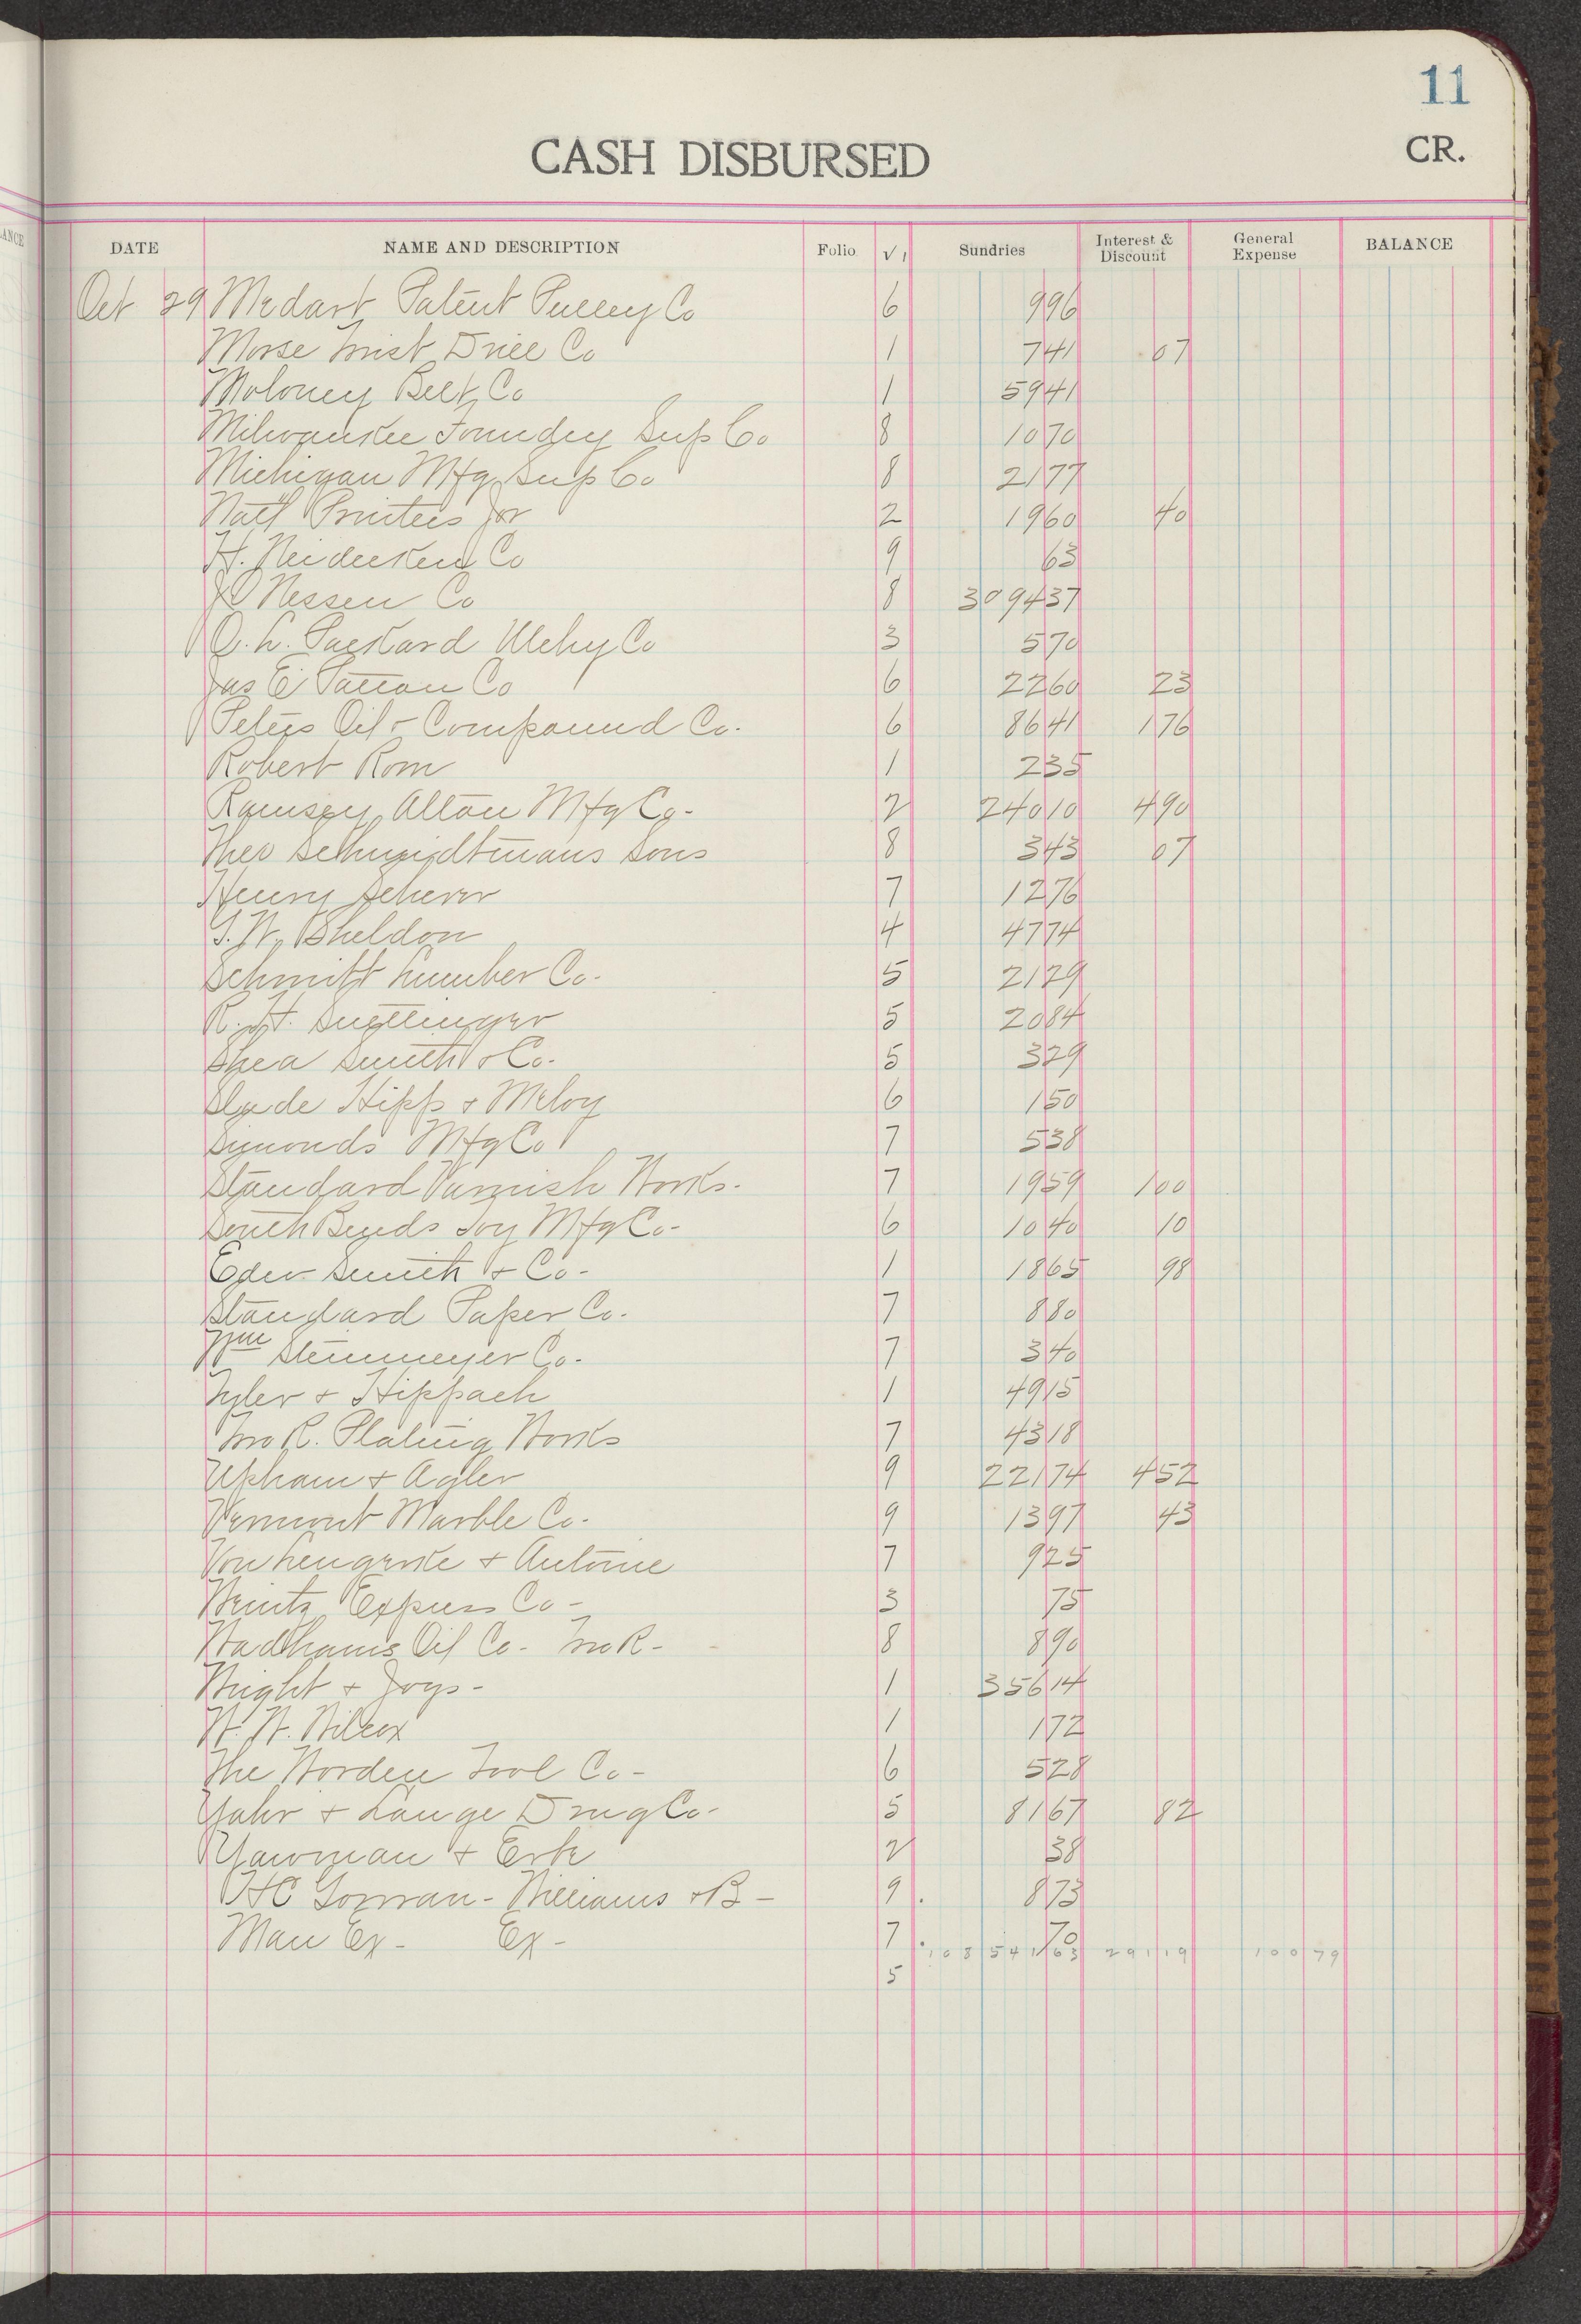 11
CASH DISBURSED CR.
DATE NAME AND DESCRIPTION Folio √ Sundries Interest & Discount General Expense BALANCE
Oct 29 Medart Patent Pulley Co 6 9 96
Morse Twist Drill Co 1 7 41 07
Moloney Belt Co 1 59 41
Milwaukee Foundry Sup Co 8 10 70
Michigan Mfg Sup Co 8 21 77
Natl Printers Jor 2 19 60 40
H. Neidecken Co 9 63
Nessen Co 8 3094 37
O. L. Packard Mchy Co 3 5 70
Jas E Patton Co 6 22 60 23
Peters Oil & Compound Co. 6 86 41 1 76
Robert Rom 1 2 35
Ramsey Alton Mfg Co- 2 240 10 4 90
Theo Schmidtmans Sons 8 3 43 07
Henry Scherer 7 12 76
T. W. Sheldon 4 47 74
Schmitt Lumber Co. 5 21 29
R. H. 5 20 84
Shea Smith & Co. 5 3 29
Slade Hipp & Meloy 6 1 50
Simonds Mfg Co 7 5 38
Standard Varnish Works. 7 19 59 1 00
South Bends Toy Mfg Co- 6 10 40 10
Edw. Smith & Co- 1 18 65 98
Standard Paper Co. 7 8 80
Wm Steinmeyer Co. 7 3 40
Tyler & Hippach 1 49 15
Two R. Plating Works 7 43 18
Upham & Agler 9 221 74 4 52
Vermont Marble Co. 9 13 97 43
Von Lengerke & Antoine 7 9 25
Wentz Express Co- 3 75
Wadhams Oil Co- Two R- 8 8 90
Wright & Joys- 1 356 14
W. W. Wilcox 1 1 72
The Worden Tool Co- 6 5 28
Yahr & Lange Drug Co- 5 81 67 82
Yawman & Erbe 2 38
HC Gorman- Williams & B- 9 8 73
Man Ex- Ex- 7 70
108 541 63 291 19 100 79
5